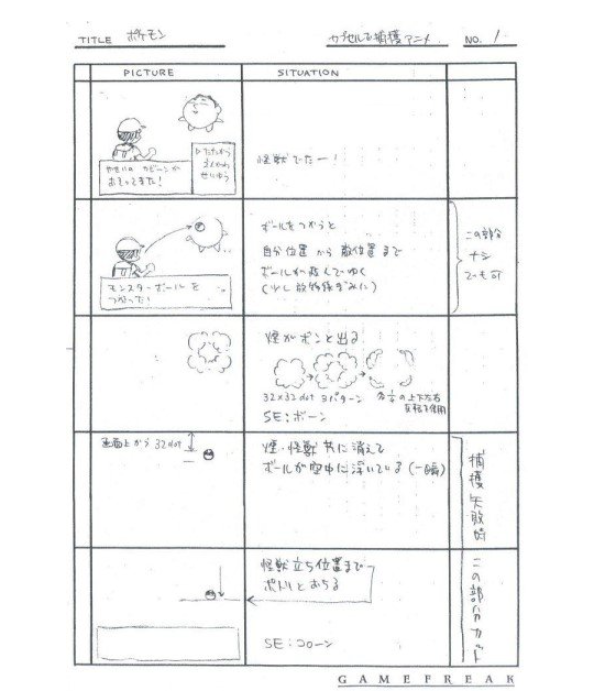 TITLE ポケモン
カプセルで捕獲アニメ
NO. 1
PICTURE
SITUATION
やせいの カビーンが
おそってきた!
▷たたかう
せいゆう
怪獣でたー!
モンスターボールを
つかった!
ボールをつかうと
自分位置から敵位置まで
ボールが飛んでゆく
(少し放物線ぎみに)
この部分
ナシ
でも可
煙がボンと出る
32×32dot 3パターン
各々の上下左右
反転を使用
SE:ボーン
画面上から32dot
煙・怪獣 共に消えて
ボールが空中に浮いている(一瞬)
捕獲失敗時
この部分カット
怪獣立ち位置まで
ポトリとおちる
SE:コローン
GAMEFREAK